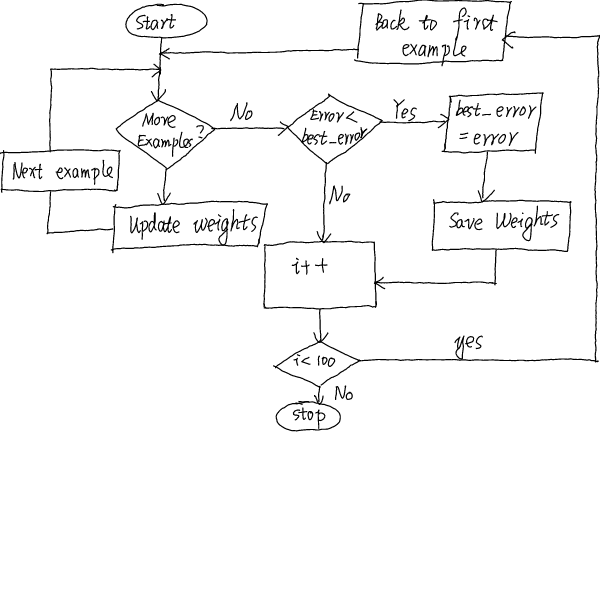 Start
Back to first
example
Move
Examples?
No
Error<
best_error
Yes
best_error
= error
Next example
Update weights
No
Save Weights
i++
i<100
yes
No
stop